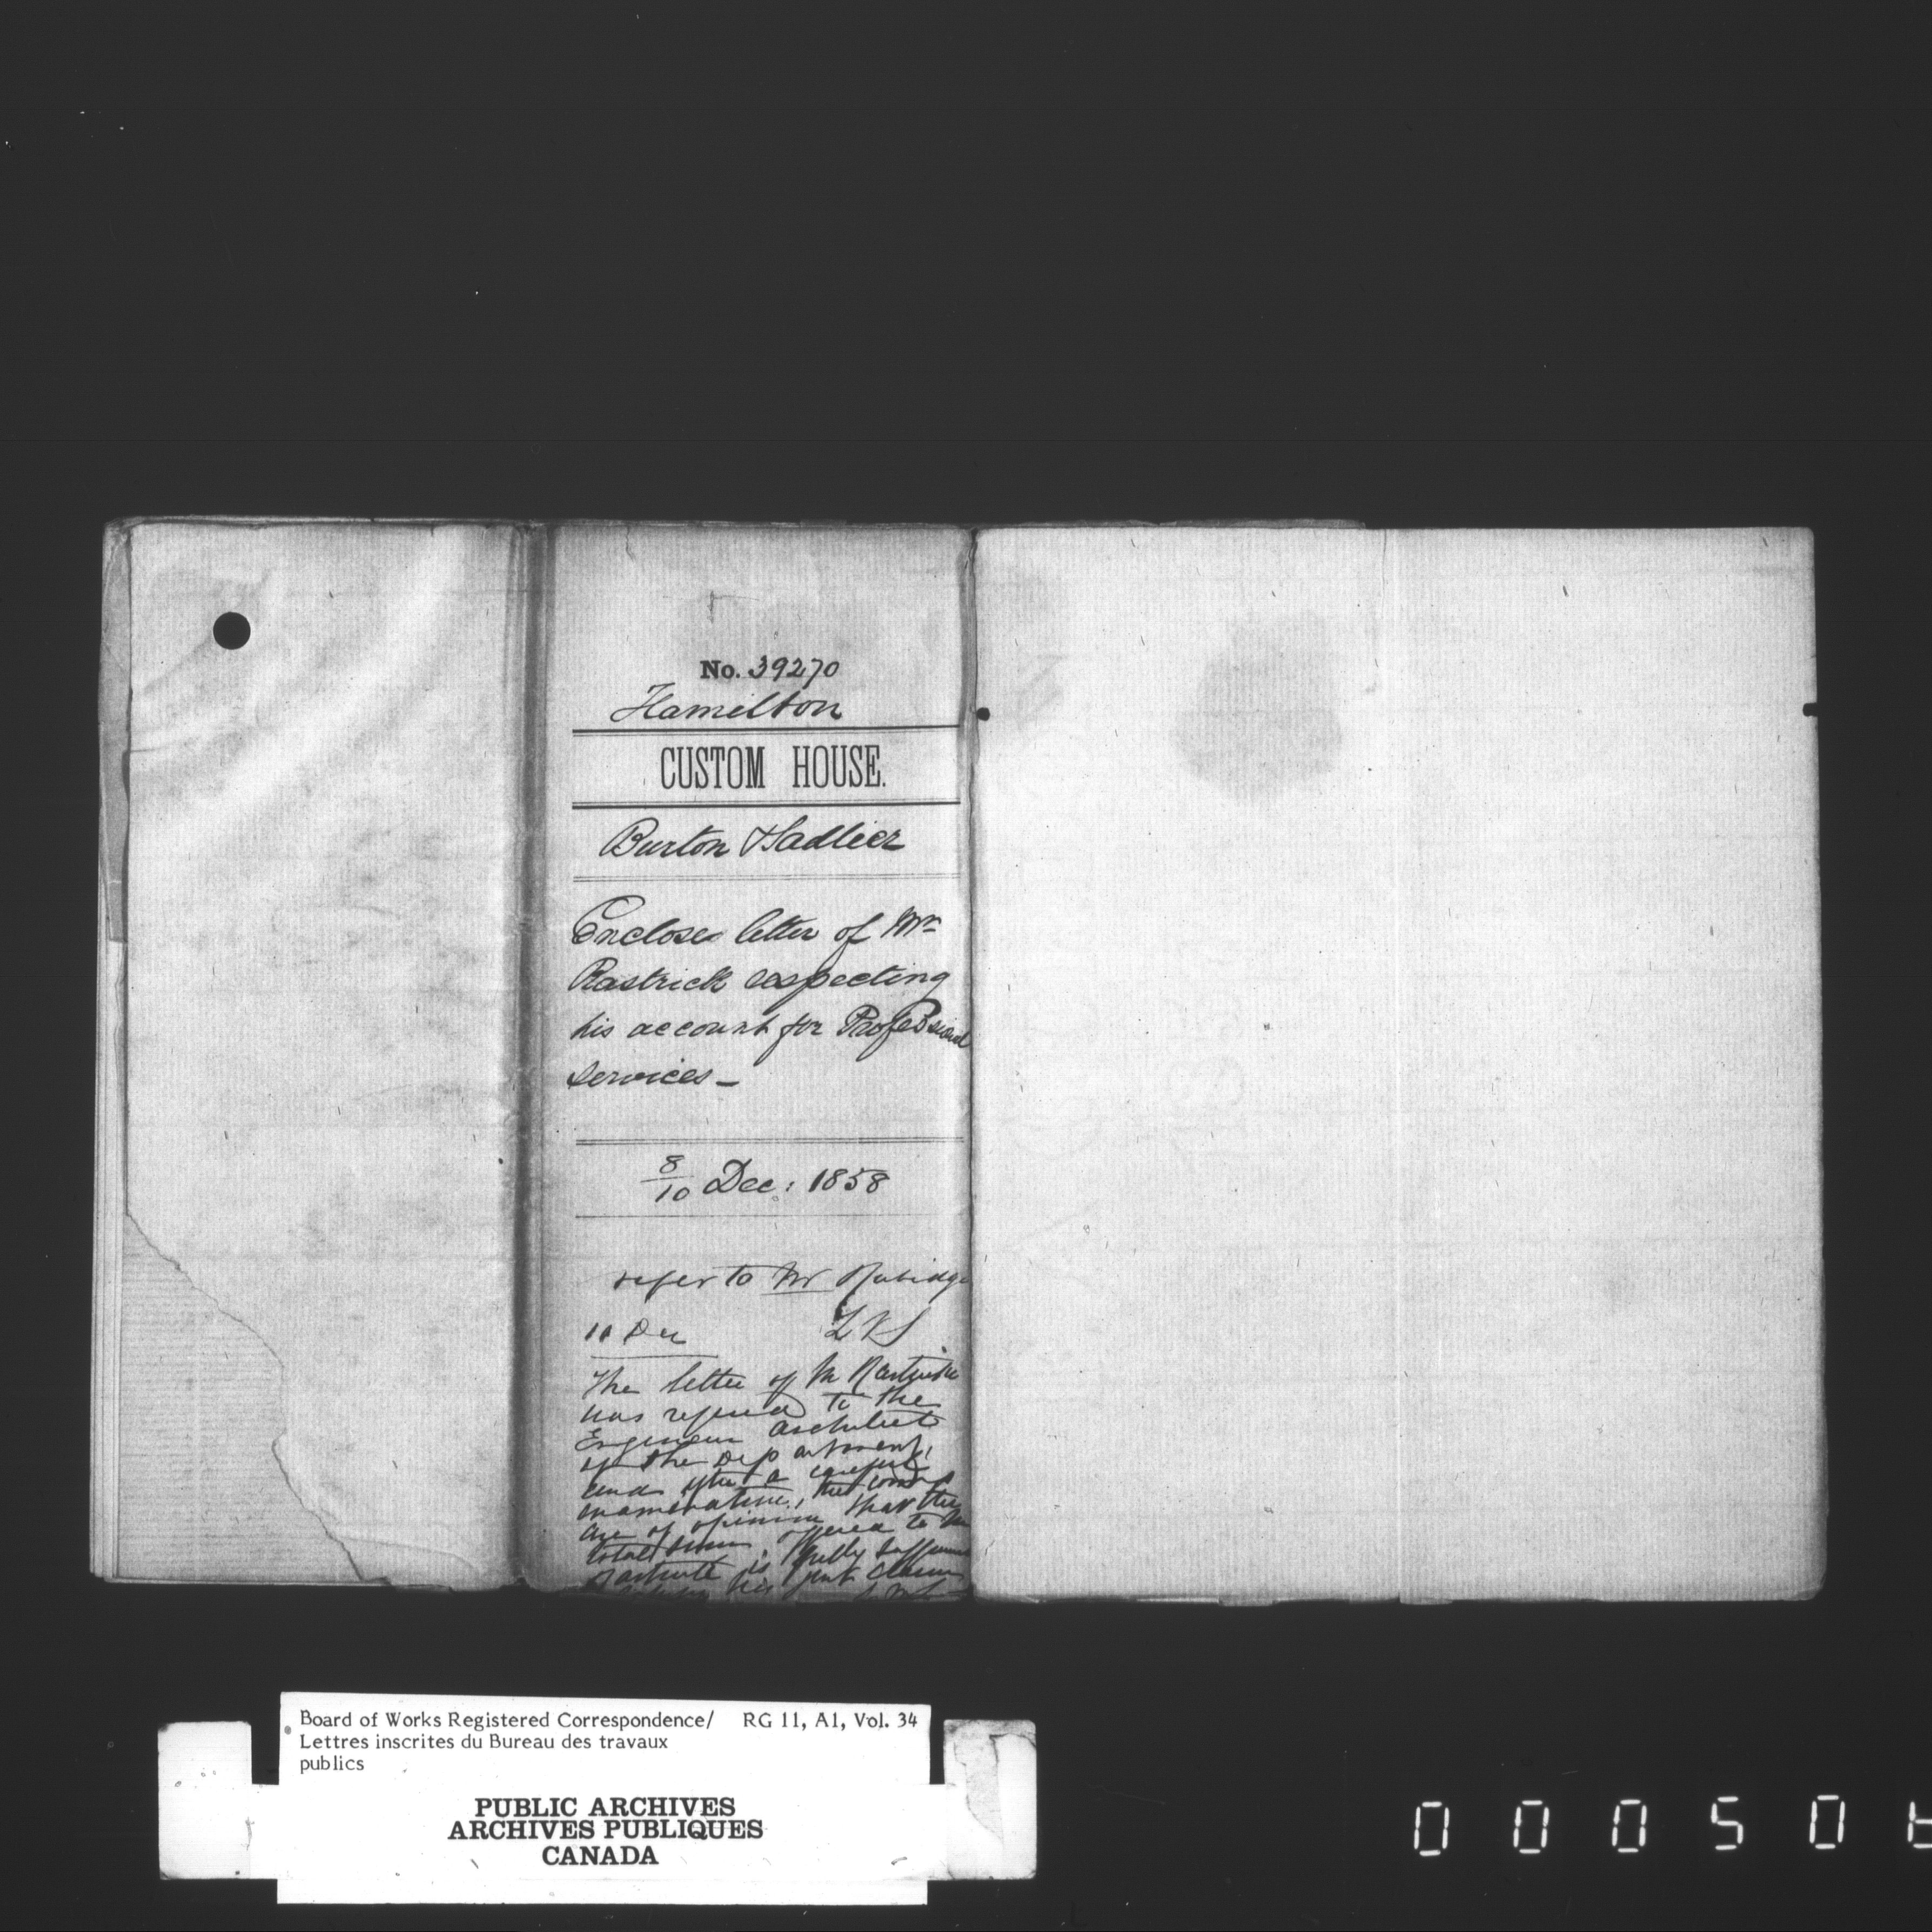 No. 39270
Hamilton
CUSTOM HOUSE.
Burton & Sadlier
Encloses letter of Mr
Rastrick respecting
his account for Professional
services —
8/10 Dec: 1858
refer to Mr Rubidge
11 Dec
The letter of Mr Rastrick
was referred to the
Engineer Architect
of the Department,
and after a careful
examination, the
are of opinion that the
total sum offered to Mr
Rastrick is fully
his just claim
Board of Works Registered Correspondence/ RG 11, A1, Vol. 34
Lettres inscrites du Bureau des travaux
publics
PUBLIC ARCHIVES
ARCHIVES PUBLIQUES
CANADA
00050